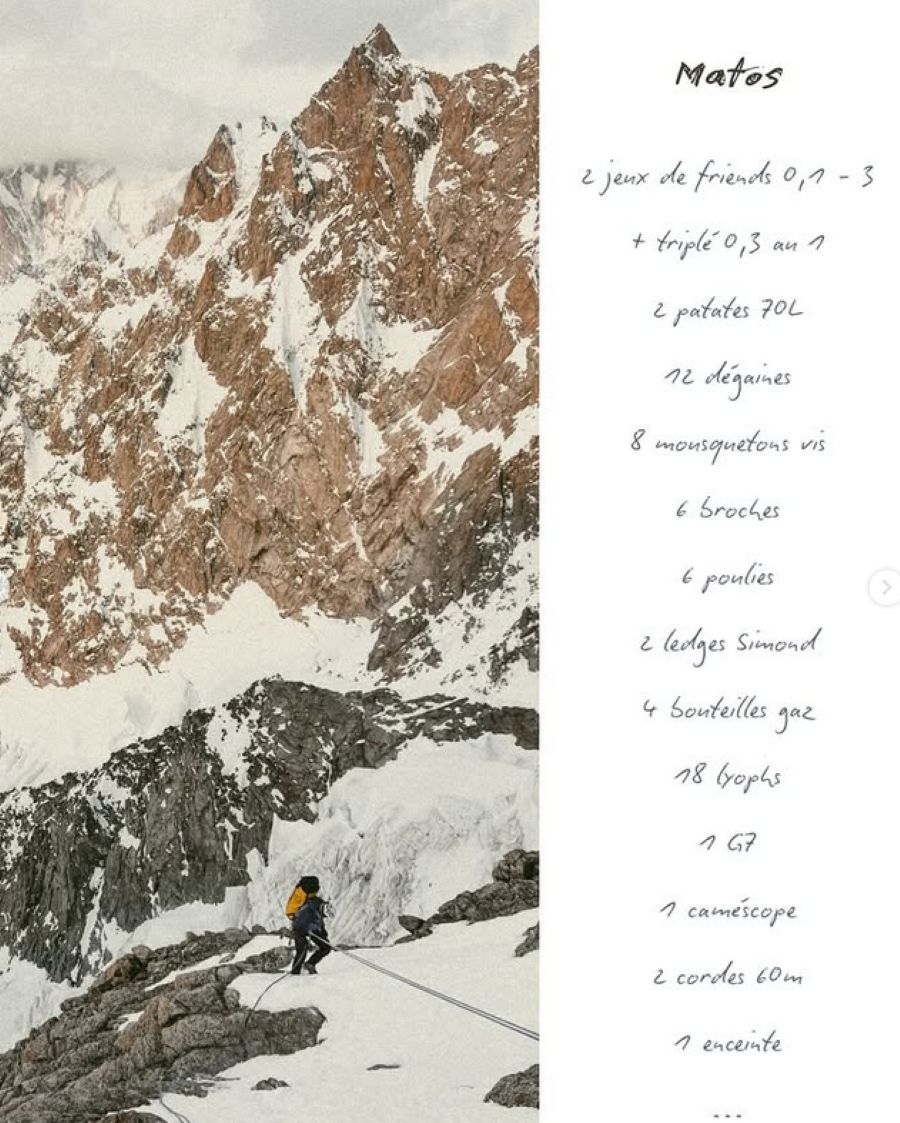 Matos
2 jeux de friends 0,1 - 3
+ triplé 0,3 au 1
2 patates 70L
12 dégaines
8 mousquetons vis
6 broches
6 poulies
2 ledges Simond
4 bouteilles gaz
18 lyophs
1 G7
1 caméscope
2 cordes 60m
1 enceinte
...